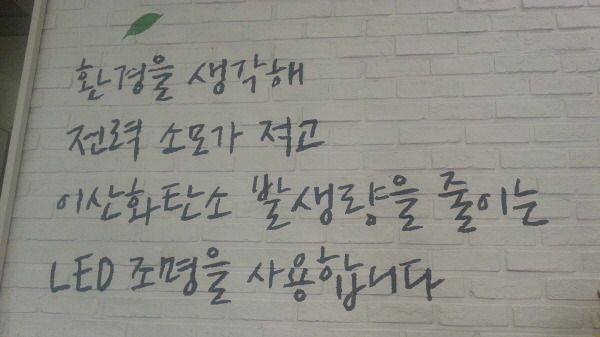 환경을 생각해
전력 소모가 적고
이산화탄소 발생량을 줄이는
LED 조명을 사용합니다